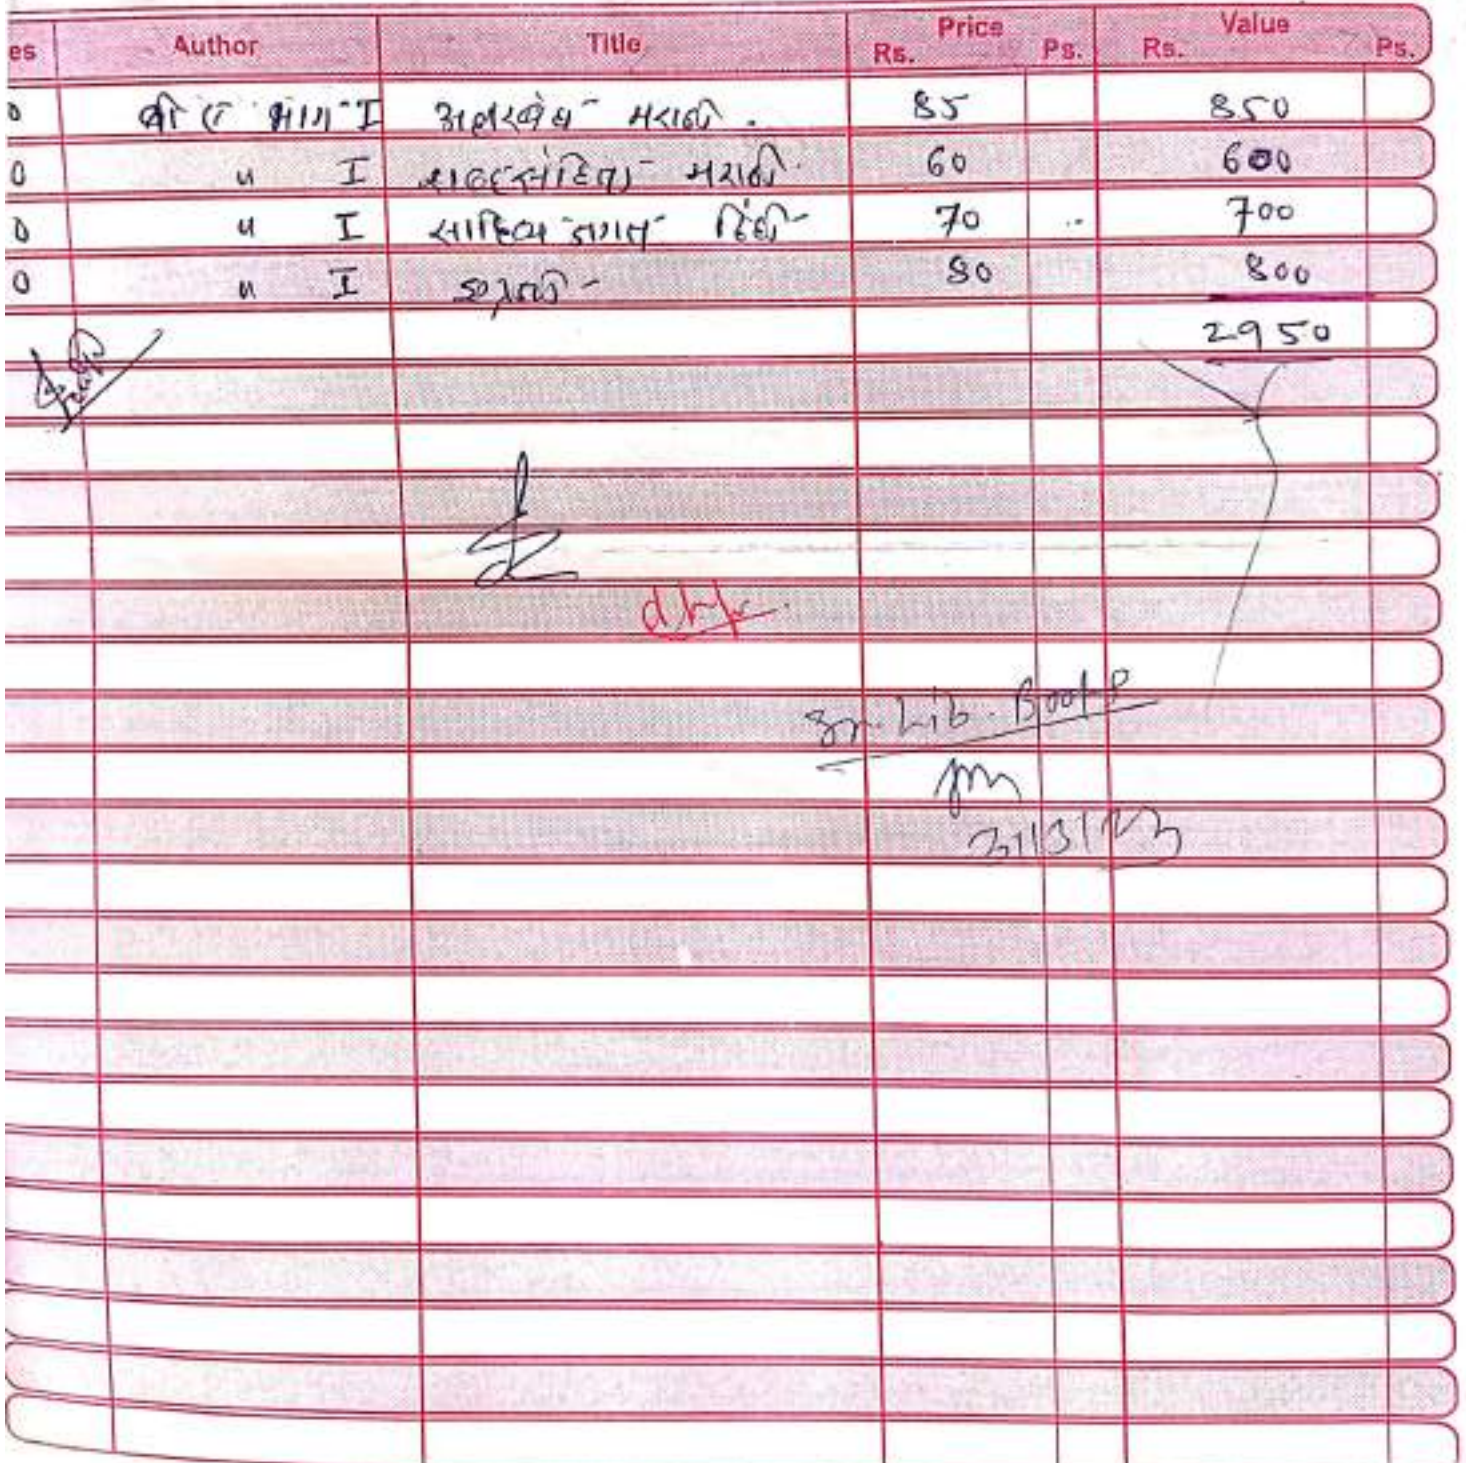 es Author Title Price Rs. Ps. Value Rs. Ps.
0 बी ए भाग-I अक्षरवेध मराठी. 85 850
0 " I मराठी 60 600
0 " I साहित्य जगत हिंदी 70 700
0 " I 80 800
2950
Lib. Books
31/3/23